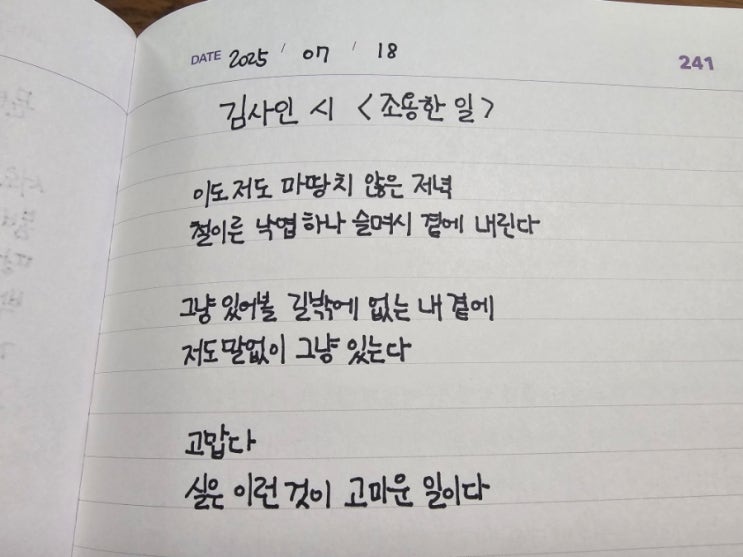 DATE 2025 / 07 / 18
241
김사인 시 <조용한 일>
이도저도 마땅치 않은 저녁
철이른 낙엽하나 슬며시 곁에 내린다
그냥 있어볼 길밖에 없는 내 곁에
저도 말없이 그냥 있는다
고맙다
실은 이런것이 고마운 일이다